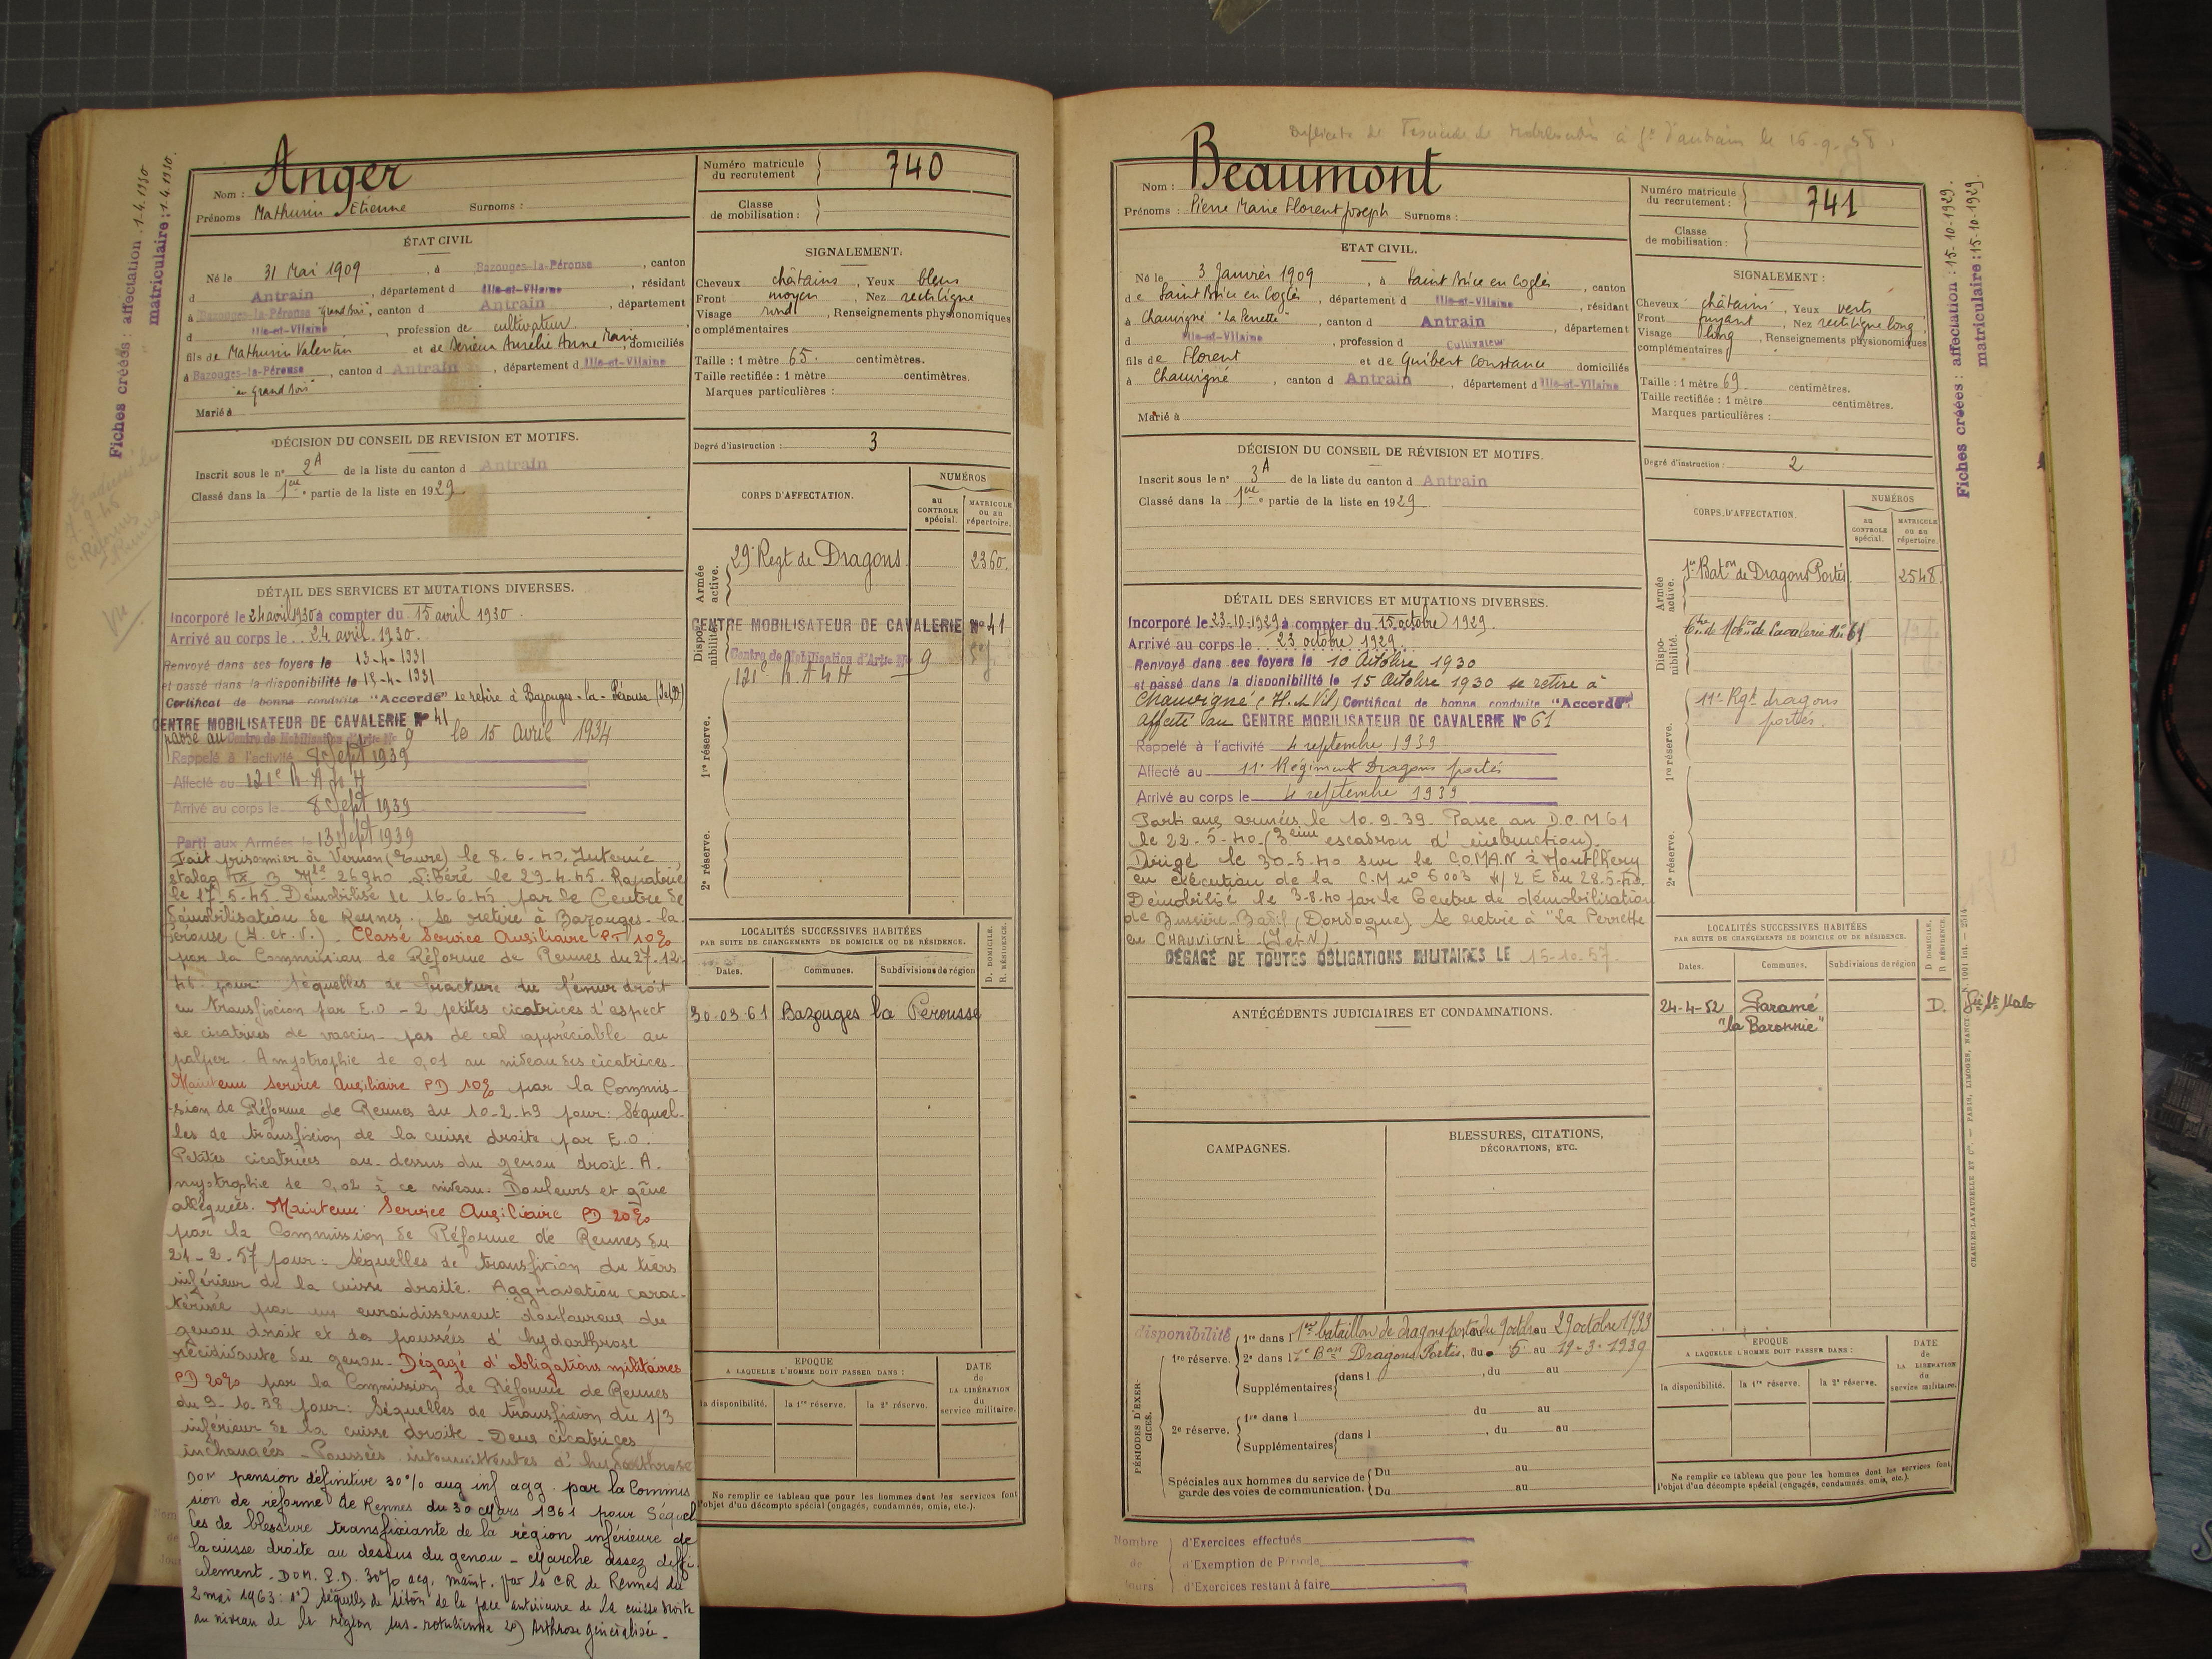 Fiches créées : affectation : 1-4.1930
matriculaire : 1.4.1930.
Vu
Nom : Anger
Prénoms Mathurin Etienne Surnoms :
Numéro matricule du recrutement 740
Classe de mobilisation :
ÉTAT CIVIL
Né le 31 Mai 1909, à Bazouges-la-Pérouse, canton
d Antrain, département d Ille-et-Vilaine, résidant
à Bazouges-la-Pérouse "Grand Bois", canton d Antrain, département
d Ille-et-Vilaine, profession de cultivateur
fils de Mathurin Valentin et de Aurélie Anne Marie, domiciliés
à Bazouges-la-Pérouse, canton d Antrain, département d Ille-et-Vilaine
"au Grand Bois"
Marié à
SIGNALEMENT.
Cheveux châtains, Yeux bleus
Front moyen, Nez rectiligne
Visage rond, Renseignements physionomiques
complémentaires
Taille : 1 mètre 65. centimètres.
Taille rectifiée : 1 mètre centimètres.
Marques particulières :
Degré d'instruction : 3
DÉCISION DU CONSEIL DE REVISION ET MOTIFS.
Inscrit sous le n° 2A de la liste du canton d Antrain
Classé dans la 1ère partie de la liste en 1929
CORPS D'AFFECTATION.
NUMÉROS
au CONTROLE spécial.
MATRICULE ou au répertoire.
Armée active.
29e Regt de Dragons 2360.
Disponibilité.
CENTRE MOBILISATEUR DE CAVALERIE N° 41
Centre de Mobilisation d'Artie N° 9
121e R.A.L.H
1re réserve.
2e réserve.
DÉTAIL DES SERVICES ET MUTATIONS DIVERSES.
Incorporé le 24 avril 1930 à compter du 15 avril 1930.
Arrivé au corps le 24 avril 1930.
Renvoyé dans ses foyers le 13-4-1931
et passé dans la disponibilité le 15-4-1931
Certificat de bonne conduite "Accordé" se retire à Bazouges-la-Pérouse (I et V)
CENTRE MOBILISATEUR DE CAVALERIE N° 41
passé au Centre de Mobilisation d'Artie N° 9 le 15 Avril 1934
Rappelé à l'activité 8 Sept 1939
Affecté au 121e R A L H
Arrivé au corps le 8 Sept 1939
Parti aux Armées le 13 Sept 1939
Fait prisonnier à Vernon (Eure) le 8.6.40. Interné
stalag IX B Mle 26940 Libéré le 29-4-45. Rapatrié
le 17-5-45. Démobilisé le 16-6-45 par le Centre de
démobilisation de Rennes. Se retire à Bazouges-la-
Pérouse (I. et V.). Classé Service Auxiliaire PT 10%
par la Commission de Réforme de Rennes du 27-12-
46 pour: Séquelles de fracture du fémur droit
en transfixion par E.O - 2 petites cicatrices d'aspect
de cicatrices de vaccin - pas de cal appréciable au
palper. Amyotrophie de 0,01 au niveau des cicatrices.
Maintenu Service Auxiliaire PD 10% par la Commis-
sion de Réforme de Rennes du 10-2-49 pour: Séquel-
les de transfixion de la cuisse droite par E.O.
Petites cicatrices au dessus du genou droit. A-
myotrophie de 0,02 à ce niveau. Douleurs et gêne
alléguées. Maintenu Service Auxiliaire PD 20%
par la Commission de Réforme de Rennes du
21-2-57 pour: Séquelles de transfixion du tiers
inférieur de la cuisse droite. Aggravation carac-
térisée par un enraidissement douloureux du
genou droit et des poussées d'hydarthrose
récidivante du genou. Dégagé d'obligations militaires
PD 20% par la Commission de Réforme de Rennes
du 9-10-58 pour: Séquelles de transfixion du 1/3
inférieur de la cuisse droite - Deux cicatrices
inchangées - Poussées intermittentes d'hydarthrose
DOM pension définitive 30% aug inf agg. par la Commis
sion de réforme de Rennes du 30 Mars 1961 pour Séquel
les de blessure transfixiante de la région inférieure de
la cuisse droite au dessus du genou - Marche assez diffi
cilement. DOM. P.D. 30% acq. maint. par la CR de Rennes du
2 mai 1963: 1°) Séquelles de séton de la face antérieure de la cuisse droite
au niveau de la région sus-rotulienne 2°) Arthrose généralisée.
LOCALITÉS SUCCESSIVES HABITÉES
PAR SUITE DE CHANGEMENTS DE DOMICILE OU DE RÉSIDENCE.
D. DOMICILE.
R. RÉSIDENCE.
Dates. Communes. Subdivisions de région
30-03 61 Bazouges la Perousse
EPOQUE
A LAQUELLE L'HOMME DOIT PASSER DANS :
la disponibilité. la 1re réserve. la 2e réserve.
DATE de LA LIBÉRATION du service militaire.
Ne remplir ce tableau que pour les hommes dont les services font
l'objet d'un décompte spécial (engagés, condamnés, omis, etc.).
Duplicata de Fascicule de Mobilisation à Gie d'Antrain le 16-9-38.
Nom : Beaumont
Prénoms : Pierre Marie Florent Joseph Surnoms :
Numéro matricule du recrutement : 741
Classe de mobilisation :
Fiches créées : affectation : 15-10-1929.
matriculaire : 15-10-1929.
ETAT CIVIL.
Né le 3 Janvier 1909, à Saint Brice en Coglès, canton
de Saint Brice en Coglès, département d Ille-et-Vilaine, résidant
à Chauvigné "La Perrette", canton d Antrain, département
d Ille-et-Vilaine, profession d Cultivateur
fils de Florent et de Guibert Constance domiciliés
à Chauvigné, canton d Antrain, département d Ille-et-Vilaine
Marié à
SIGNALEMENT :
Cheveux châtains, Yeux verts
Front fuyant, Nez rectiligne long
Visage long, Renseignements physionomiques
complémentaires
Taille : 1 mètre 69 centimètres.
Taille rectifiée : 1 mètre centimètres.
Marques particulières :
Degré d'instruction : 2
DÉCISION DU CONSEIL DE RÉVISION ET MOTIFS.
Inscrit sous le n° 3A de la liste du canton d Antrain
Classé dans la 1ère partie de la liste en 1929
CORPS D'AFFECTATION.
NUMÉROS
au CONTROLE spécial.
MATRICULE ou au répertoire.
Armée active.
1er Baton de Dragons Portés 2548.
Disponibilité.
Ctre de Mobon de Cavalerie N° 61
1re réserve.
11e Rgt dragons
portés.
2e réserve.
DÉTAIL DES SERVICES ET MUTATIONS DIVERSES.
Incorporé le 23-10-1929 à compter du 15 octobre 1929.
Arrivé au corps le 23 octobre 1929
Renvoyé dans ses foyers le 10 Octobre 1930
et passé dans la disponibilité le 15 Octobre 1930 se retire à
Chauvigné (I. et Vil) Certificat de bonne conduite "Accordé"
affecté au CENTRE MOBILISATEUR DE CAVALERIE N° 61
Rappelé à l'activité 4 septembre 1939
Affecté au 11e Régiment Dragons portés
Arrivé au corps le 4 septembre 1939
Parti aux armées le 10.9.39. Passe au D.C.M 61
le 22-5-40 (3ème escadron d'instruction).
Dirigé le 30-5-40 sur le C.O.M.A.N à Montlhéry
en exécution de la C.M n° 6003 /2 E du 28.5.40.
Démobilisé le 3-8-40 par le Centre de démobilisation
de Bussière-Badil (Dordogne). Se retire à "La Perrette
en CHAUVIGNÉ (I et V).
DÉGAGÉ DE TOUTES OBLIGATIONS MILITAIRES LE 15-10-57.
ANTÉCÉDENTS JUDICIAIRES ET CONDAMNATIONS.
LOCALITÉS SUCCESSIVES HABITÉES
PAR SUITE DE CHANGEMENTS DE DOMICILE OU DE RÉSIDENCE.
D DOMICILE.
R RÉSIDENCE.
Dates. Communes. Subdivisions de région
24-4-52 Paramé D. Gie St Malo
"la Baronnie"
CAMPAGNES.
BLESSURES, CITATIONS, DÉCORATIONS, ETC.
PÉRIODES D'EXERCICES.
disponibilité
1re réserve.
1re dans l 1er bataillon de dragons portés du 9 octobre au 29 octobre 1933
2e dans l 1er Bon Dragons Portés, du 5 au 19-3-1939
Supplémentaires dans l , du au
2e réserve.
1re dans l du au
Supplémentaires dans l , du au
Spéciales aux hommes du service de garde des voies de communication.
Du au
Du au
EPOQUE
A LAQUELLE L'HOMME DOIT PASSER DANS :
la disponibilité. la 1re réserve. la 2e réserve.
DATE de LA LIBÉRATION du service militaire.
Ne remplir ce tableau que pour les hommes dont les services font
l'objet d'un décompte spécial (engagés, condamnés, omis, etc.).
Nombre de jours
d'Exercices effectués
d'Exemption de Période
d'Exercices restant à faire
CHARLES-LAVAUZELLE ET Cie — PARIS, LIMOGES, NANCI